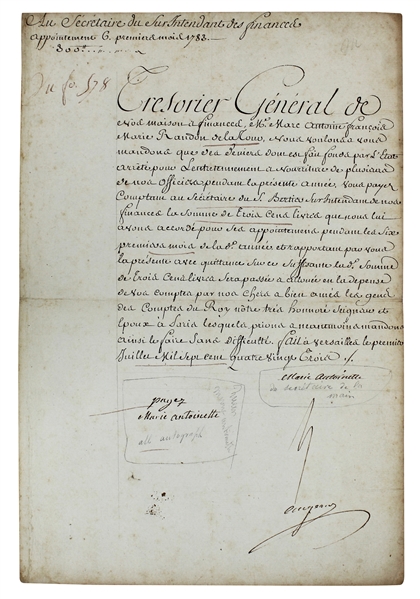 Au Secrétaire du SurIntendant des finances
appointement 6. premiers mois 1783.
300ᵗᵗ
Tresorier Général de
nos maison & finances, Mᵉ. Marc Antoine françois
Marie Randon de la Tour, Nous voulons & vous
mandons que des deniers dont est fait fonds par l'Etat
arrêté pour L'entretennement & nourriture de plusieurs
de nos officiers pendant la présente année, vous payez
Comptant au Secrétaire du S. Bertier SurIntendant de nos
finances la Somme de Trois Cens livres que nous lui
avons accordé pour ses appointemens pendant les Six
premiers mois de lad. année et rapportant par vous
la présente avec quittance sur ce suffisante lad. Somme
de Trois Cens livres sera passée & allouée en la dépense
de vos comptes par nos chers & bien amés les gens
des Comptes du Roy nôtre très honnoré Seigneur et
Epoux à Paris lesquels prions & néantmoins mandons
ainsi le faire Sans difficulté. fait à Versailles le premier
Juillet Mil Sept cent Quatre vingt Trois ./.
Marie Antoinette
du secrétaire de la
main
payez
Marie Antoinette
all autograph